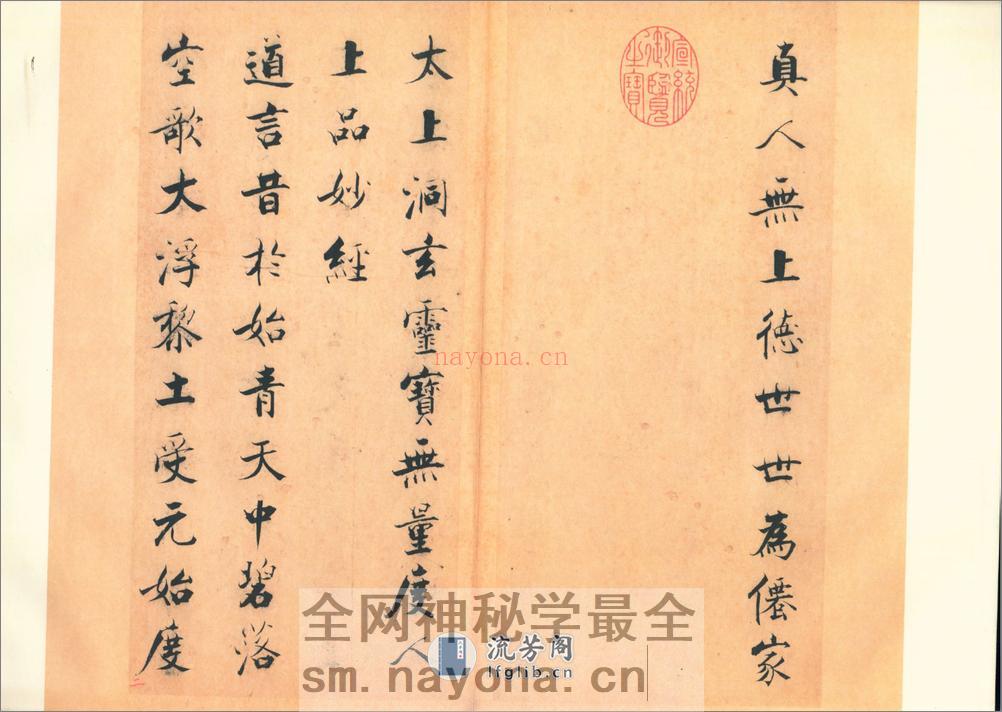 真人無上徳世世為僊家
宣統御覽之寶
太上洞玄靈寶無量度人
上品妙經
道言昔於始青天中碧落
空歌大浮黎土受元始度
二
nayona.cn
全网神秘学最全
流芳阁
lfglib.cn
sm.nayona.cn